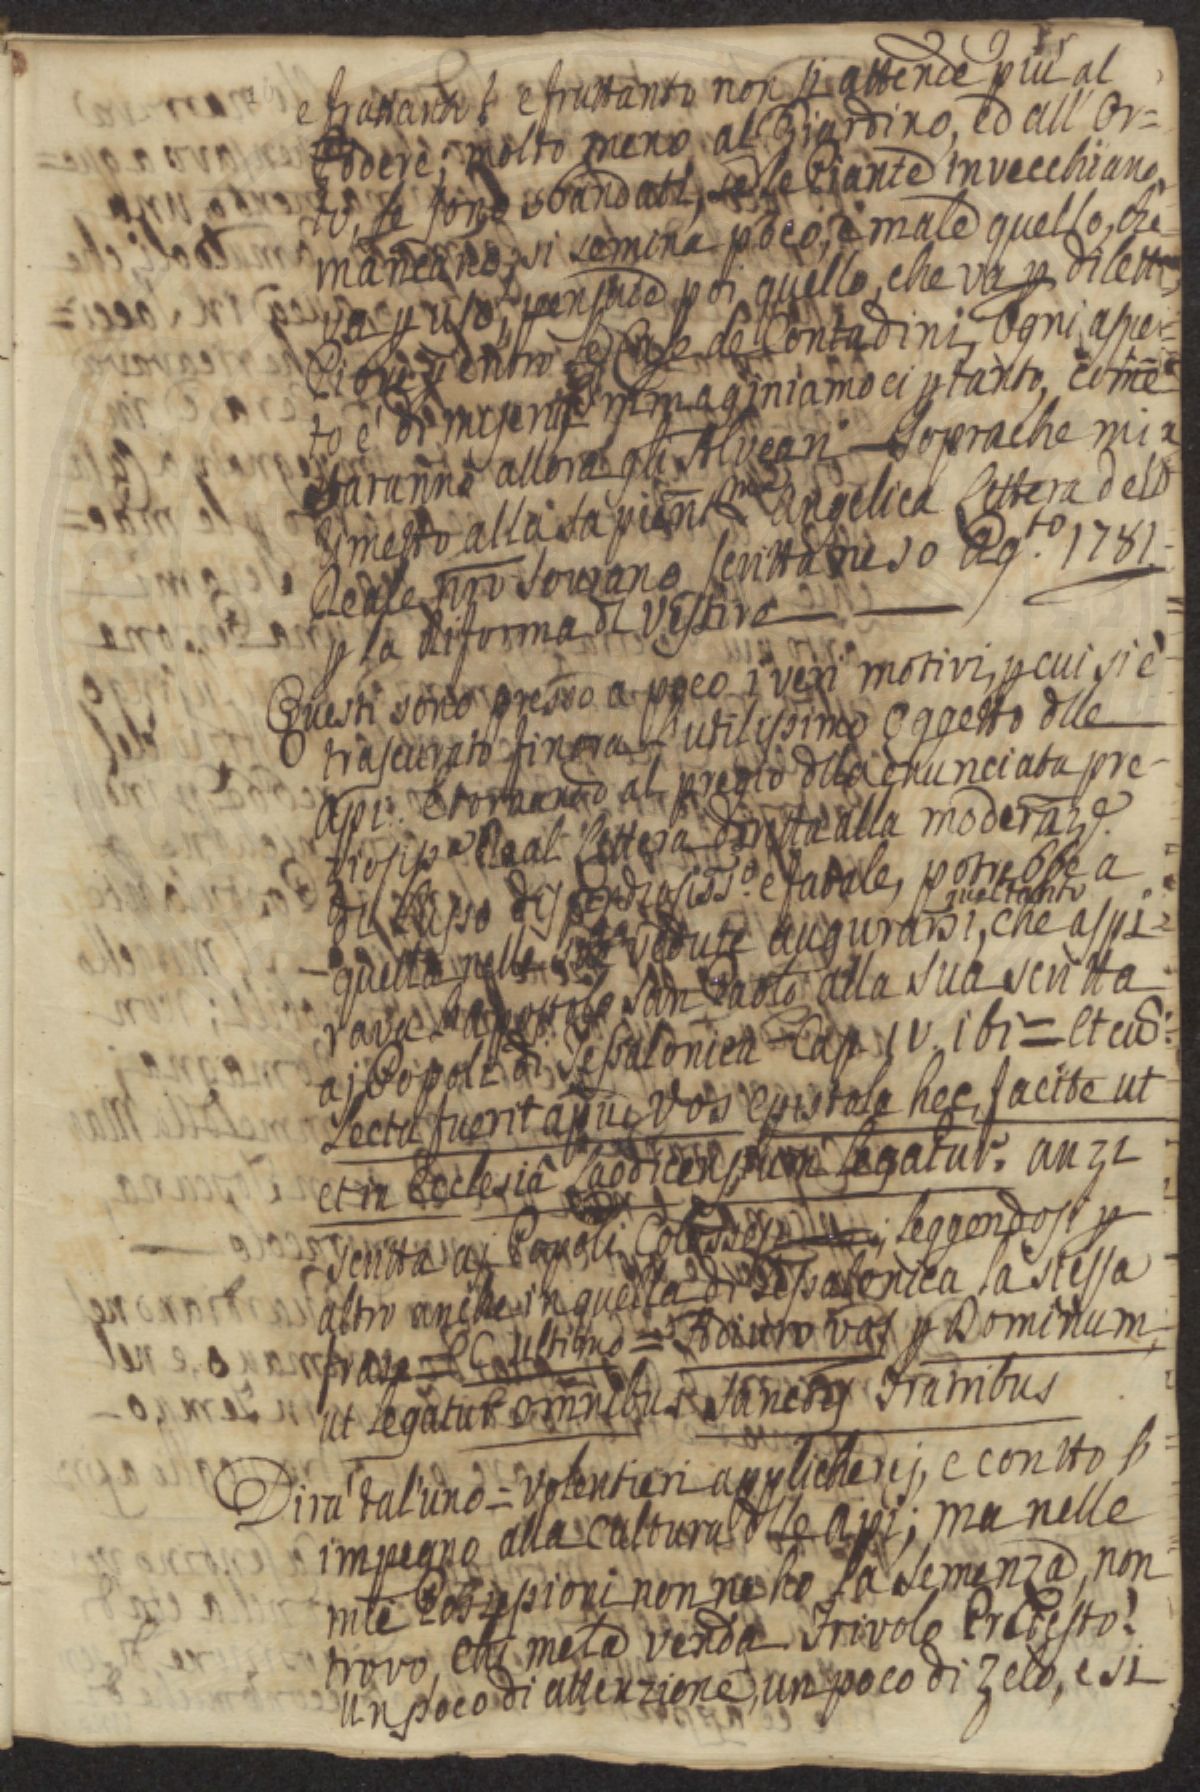 e frattanto e fruttanto non si attende più al
Podere; molto meno al Giardino, ed all'Or=
to, se sono sbandati, se le Piante invecchiano,
mancano, si semina poco, e male quello, che
va p uso, pensate poi quello, che va p diletto,
Piove p entro le Case de Contadini, Ogni aspet=
to è di miseria Immaginiamoci p tanto, come
staranno allora gli Alveari — Soprache mi
rimetto alla sapientma Angelica Lettera dello
Reale suo Sovrano scritta ne 10 Ag.to 1781
p la Riforma di Vestire —
Questi sono presso a poco i veri motivi, p cui si è
trascurato finora l'utilissimo Oggetto dlle
Api. E tornando al pregio dlla enunciata pre-
Real Lettera diretta alla moderaze.
di Lusso dispendiosiss.o e fatale, potrebbe a
quella nelle sue vedute augurarsi, quel tanto che aspi=
rava l'apostolo San Paolo alla sua scritta
a j Popoli di Tessalonica Cap. IV. ibi = Et cu
Lecta fuerit apud Vos epistola hec, facite ut
et in Ecclesiâ Laodicensium legatur. anzi
scritta a j Popoli Colossesi; leggendosi p
altro anche in quella di Tessalonica la stessa
frase = C. ultimo = Adiuro vos p Dominum,
ut legatur omnibus Sanctis Fratribus
Dirà tal'uno = volentieri applicherej, e con tto l'
impegno alla cultura dlle api; ma nelle
mie Possessioni non ne ho la semenza, non
trovo, chi me la venda Frivolo Pretesto!
Un poco di attenzione, un poco di Zelo, e si